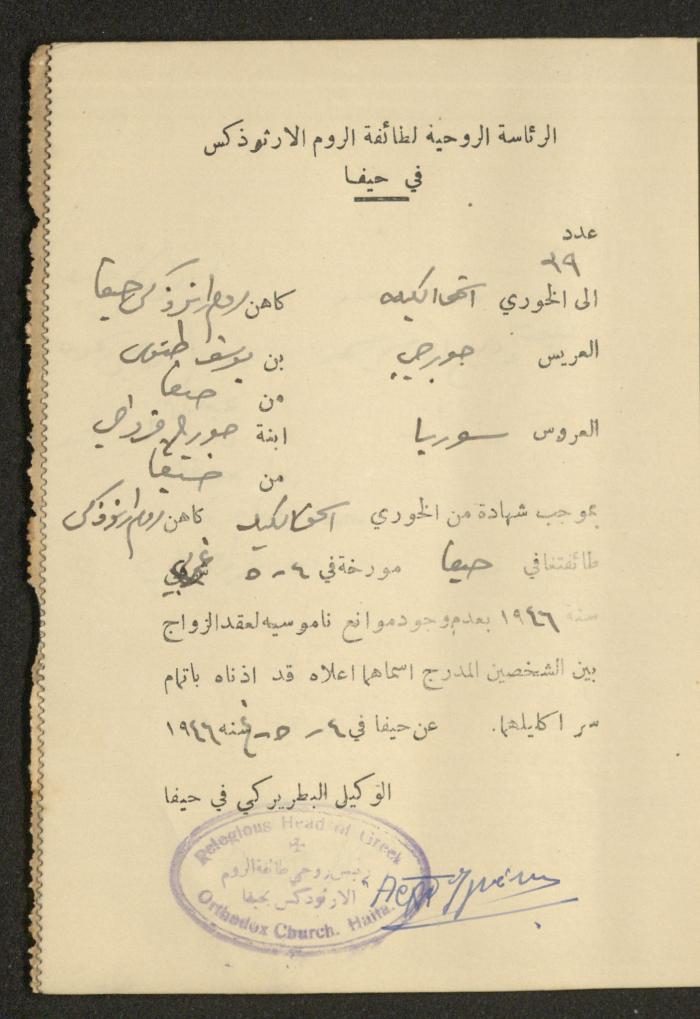 الرئاسة الروحية لطائفة الروم الارثوذكس
في حيفا
عدد
٣٩
الى الخوري اسحق الكيه كاهن روم ارثوذكس حيفا
العريس جورجي بن يوسف
من حيفا
العروس سوريا ابنة جورج قرداحي
من حيفا
بموجب شهادة من الخوري اسحق كاهن روم ارثوذكس
طائفتنا في حيفا مورخة في ٤ - ٥ غربي
سنة ١٩٤٦ بعدم وجود موانع ناموسيه لعقد الزواج
بين الشخصين المدرج اسماهما اعلاه قد اذناه باتمام
سر اكليلهما. عن حيفا في ٤ - ٥ - غ سنه ١٩٤٦
الوكيل البطريركي في حيفا
Relegious Head of Greek
رئيس روحي طائفة الروم
الارثوذكس بحيفا
Orthodox Church. Haifa.